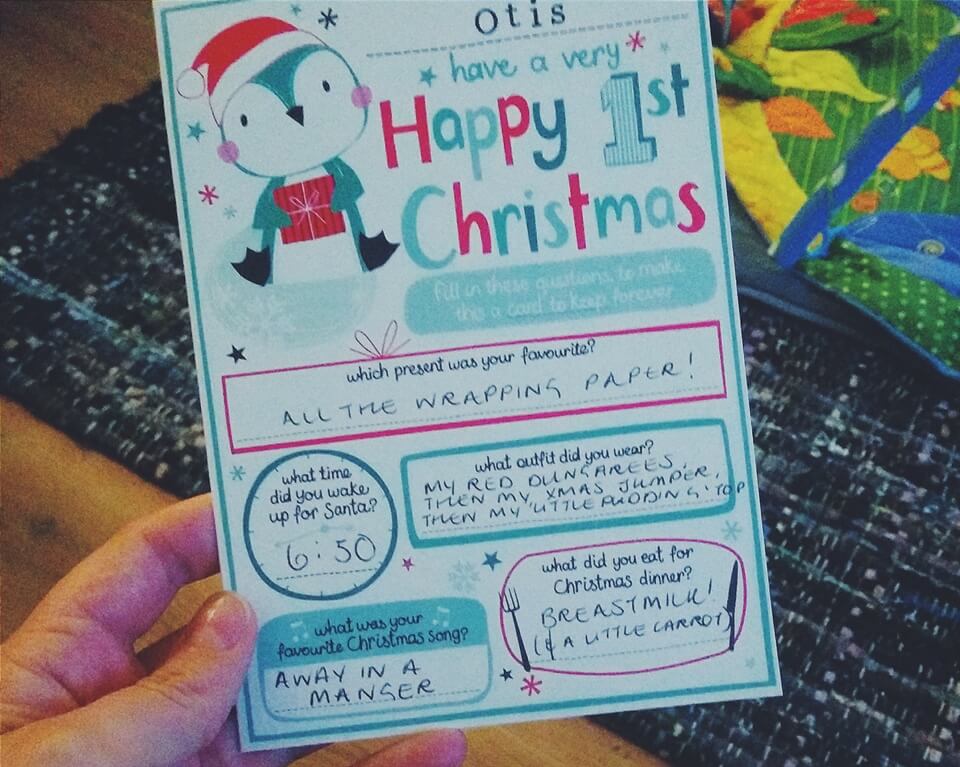 Otis
have a very
Happy 1st
Christmas
fill in these questions, to make
this a card to keep forever
which present was your favourite?
ALL THE WRAPPING PAPER!
what time
did you wake
up for Santa?
6:50
what outfit did you wear?
MY RED DUNGAREES,
THEN MY XMAS JUMPER,
THEN MY 'LITTLE PUDDING' TOP
what did you eat for
Christmas dinner?
BREASTMILK!
(& A LITTLE CARROT)
what was your
favourite Christmas song?
AWAY IN A
MANGER